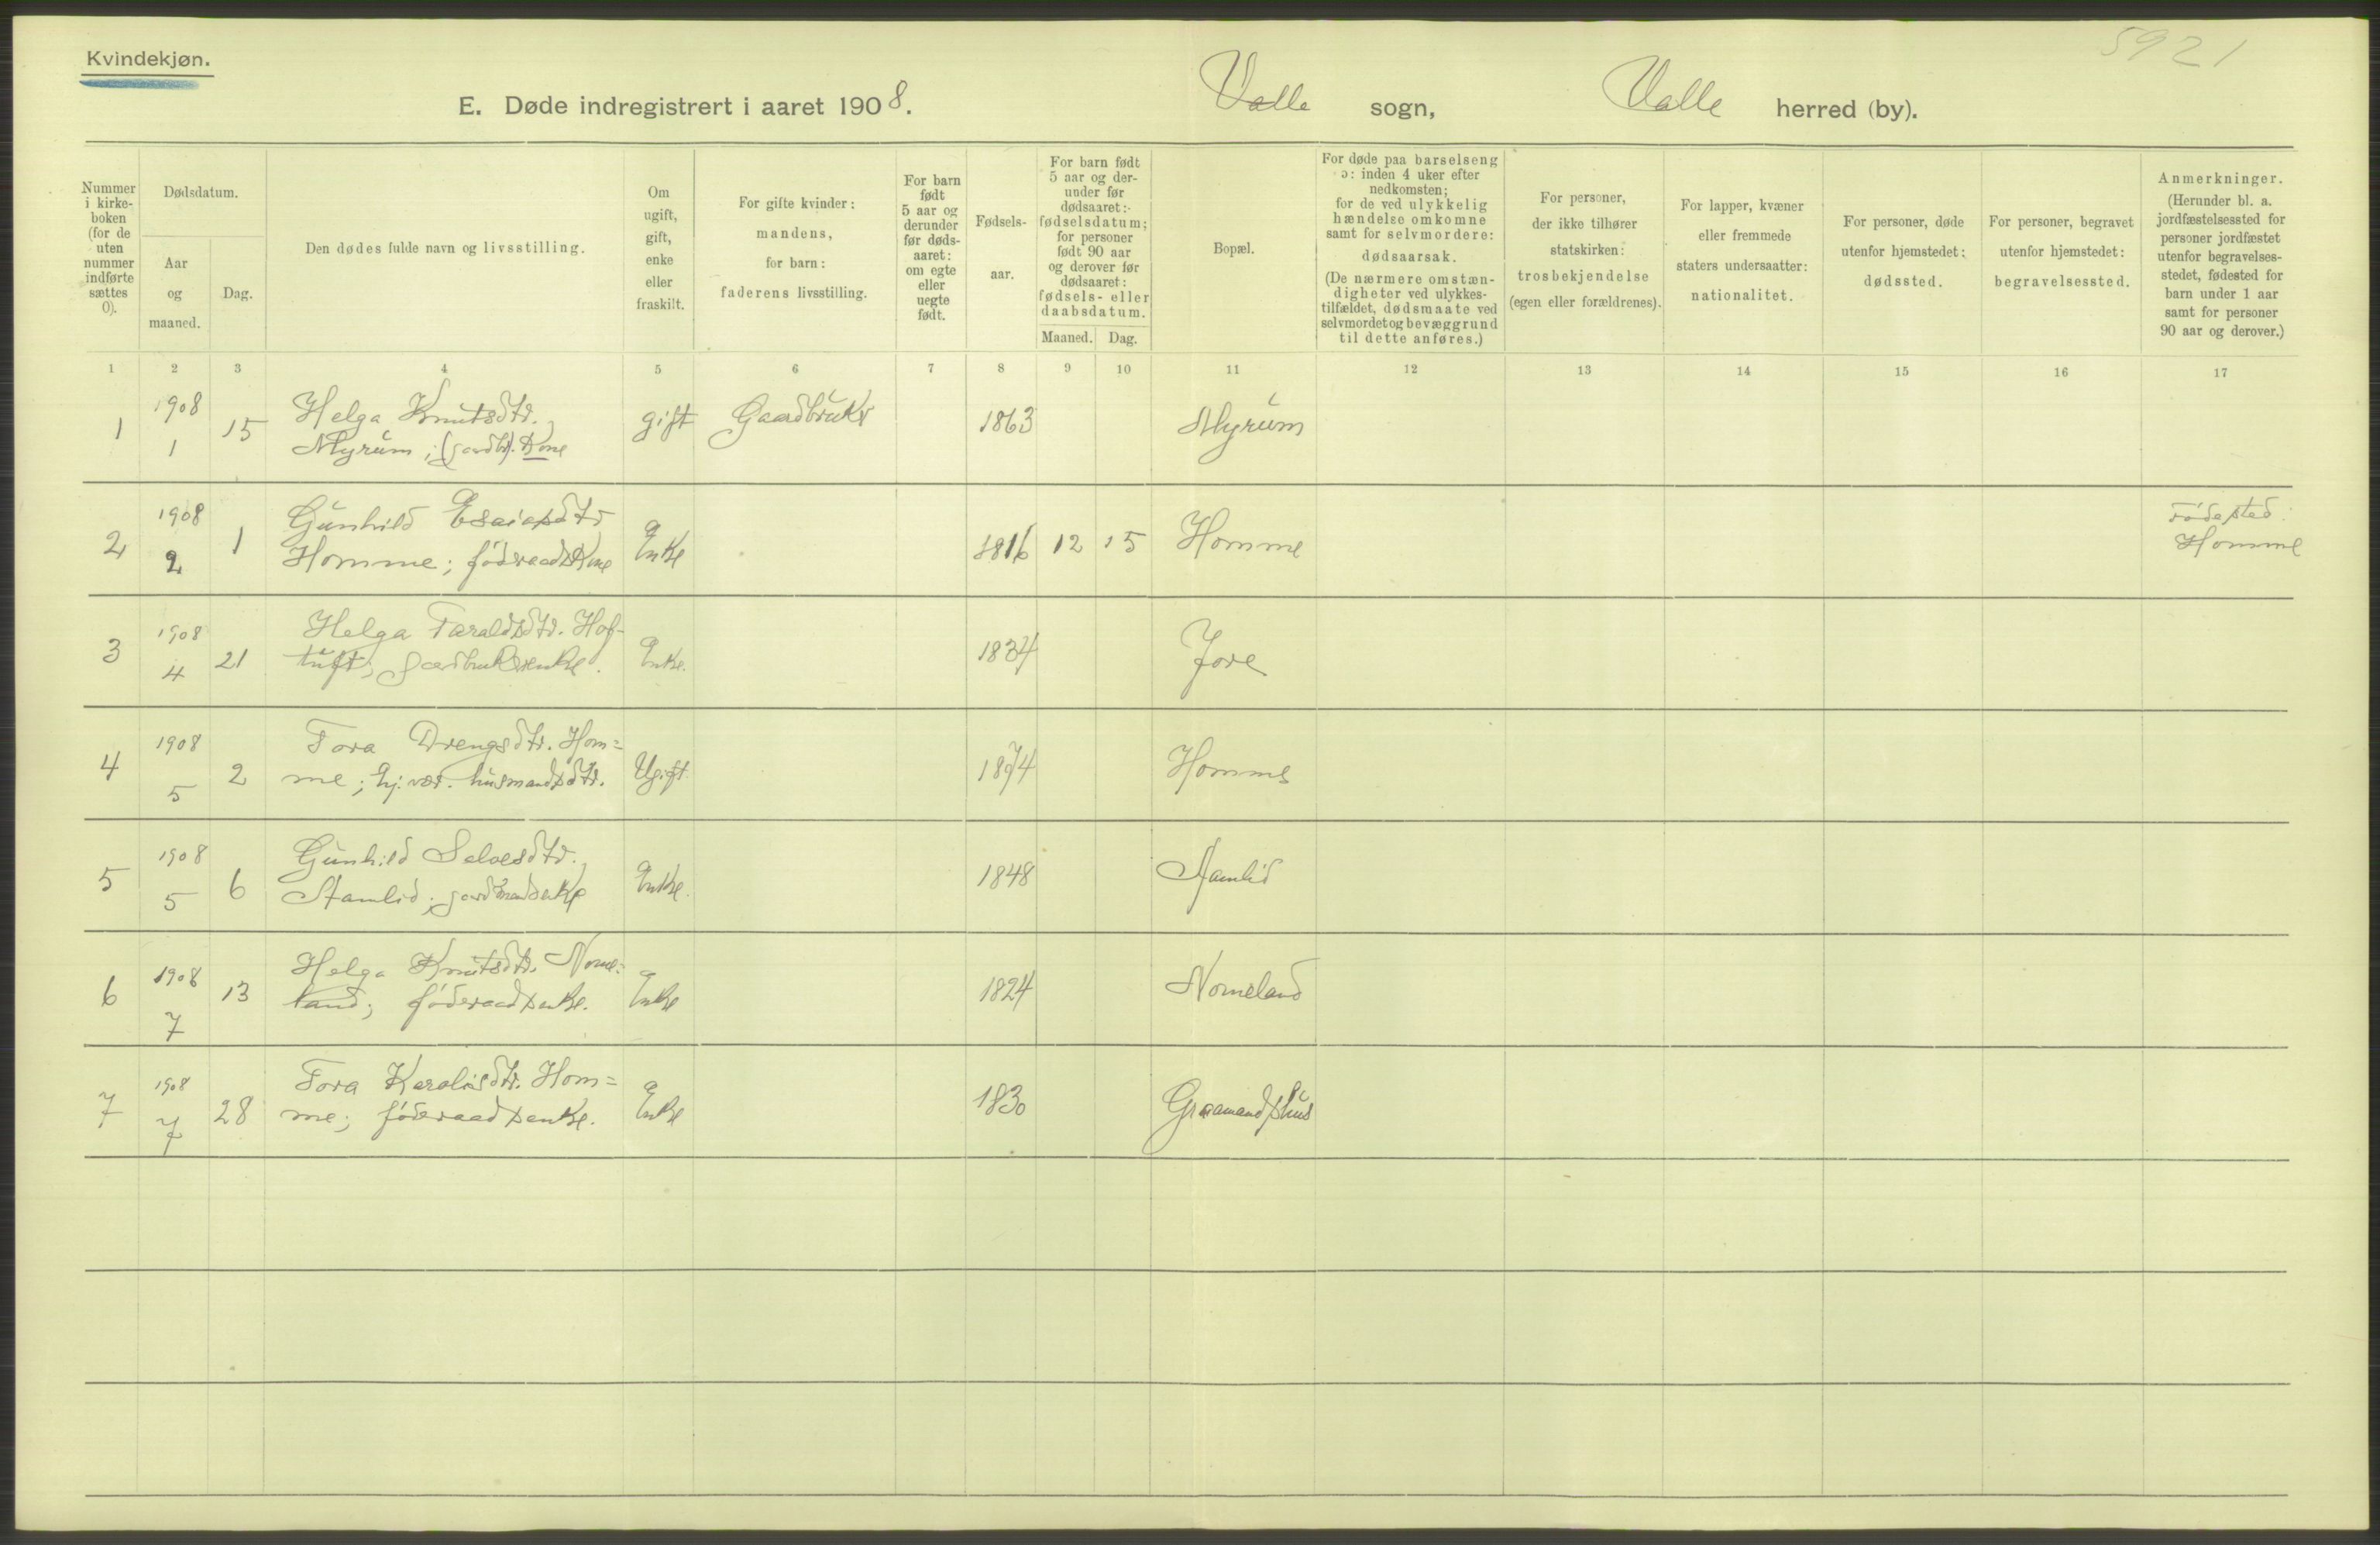 Kvindekjøn.
5921
E. Døde indregistrert i aaret 1908. Valle sogn, Valle herred (by).
Nummer i kirke-boken (for de uten nummer indførte sættes 0).
Dødsdatum.
Aar og maaned.
Dag.
Den dødes fulde navn og livsstilling.
Om ugift, gift, enke eller fraskilt.
For gifte kvinder: mandens, for barn: faderens livsstilling.
For barn født 5 aar og derunder før døds-aaret: om egte eller uegte født.
Fødsels-aar.
For barn født 5 aar og der-under før dødsaaret: fødselsdatum; for personer født 90 aar og derover før dødsaaret: fødsels- eller daabsdatum.
Maaned. Dag.
Bopæl.
For døde paa barselseng ɔ: inden 4 uker efter nedkomsten; for de ved ulykkelig hændelse omkomne samt for selvmordere: dødsaarsak. (De nærmere omstæn-digheter ved ulykkes-tilfældet, dødsmaate ved selvmordet og bevæggrund til dette anføres.)
For personer, der ikke tilhører statskirken: trosbekjendelse (egen eller forældrenes).
For lapper, kvæner eller fremmede staters undersaatter: nationalitet.
For personer, døde utenfor hjemstedet: dødssted.
For personer, begravet utenfor hjemstedet: begravelsessted.
Anmerkninger. (Herunder bl. a. jordfæstelsessted for personer jordfæstet utenfor begravelses-stedet, fødested for barn under 1 aar samt for personer 90 aar og derover.)
1 2 3 4 5 6 7 8 9 10 11 12 13 14 15 16 17
1 1908 1 15 Helga Knutsdtr. gift Gaardbruker 1863 Myrum
Myrum; (gardbr). Kone
2 1908 2 1 Gunhild Esaiasdtr Enke 1816 12 15 Homme Fødested:
Homme; føderaadskone Homme
3 1908 4 21 Helga Taraldsdtr. Hof- Enke. 1834 Jore
tuft; gardbrukerenke.
4 1908 5 2 Tora Drengsdtr. Hom= Ugift 1874 Homme
me; hj. vær. husmandsdtr.
5 1908 5 6 Gunhild Salvesdtr. Enke. 1848 Aamlid
Aamlid;
6 1908 7 13 Helga Knutsdtr. Nome= Enke 1824 Nomeland
land; føderaadsenke.
7 1908 7 28 Tora Karolisdtr. Hom= Enke 1830 Graamandshus
me; føderaadsenke.